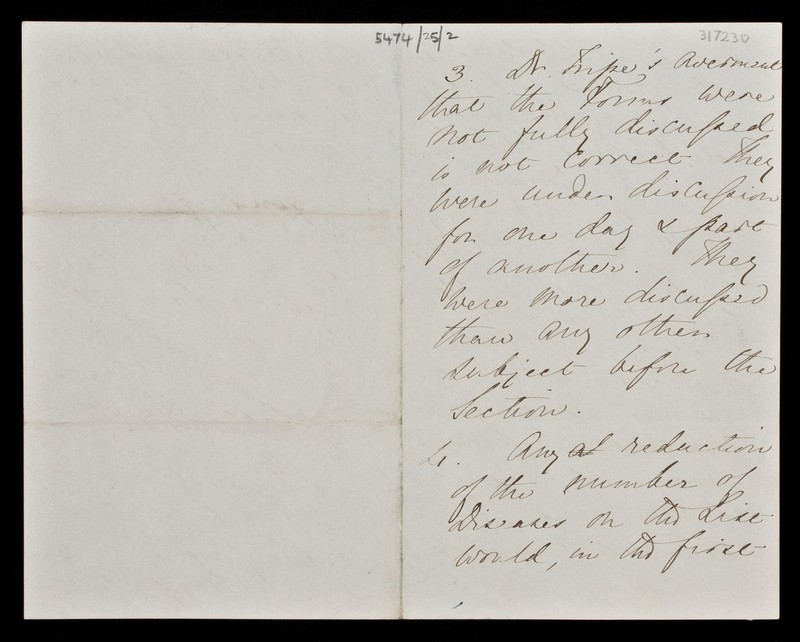 5474/25/2
317230
3. Dr. Tripe's averment
that the Forms were
not fully discussed
is not correct. They
were under discussion
for one day & part
of another. They
were more discussed
than any other
subject before the
Section.
4. Any al reduction
of the number of
Diseases on the List
would, in the first